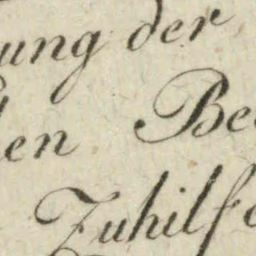 ung der
en Be
Zuhilf